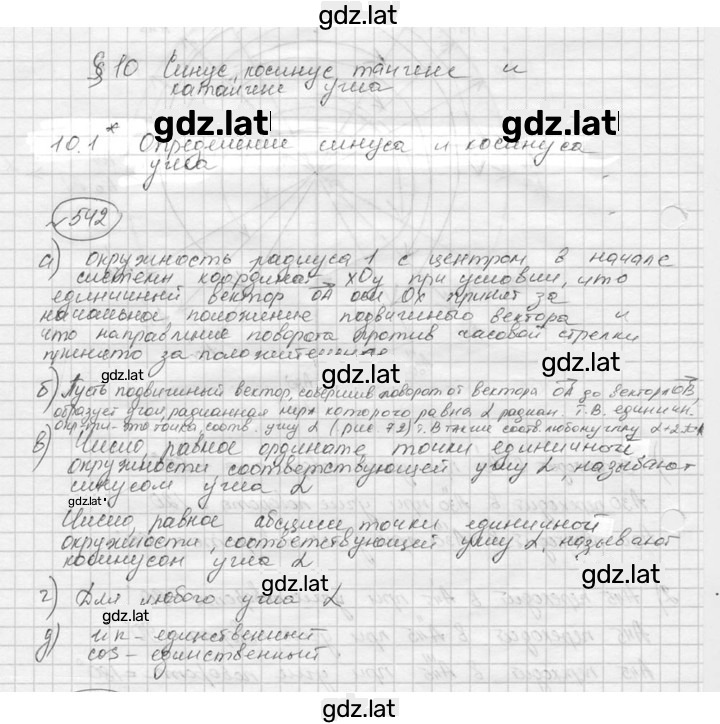 gdz.lat
§10 Синус, косинус, тангенс и
катангенс угла
gdz.lat gdz.lat
10.1* Определение синуса и косинуса
угла
542
а) окружность радиуса 1 с центром в начале
системы координат xOy при условии, что
единичный вектор OA оси Ox принят за
начальное положение подвижного вектора и
что направление поворота против часовой стрелки
принято за положительное
gdz.lat gdz.lat
б) Пусть подвижный вектор, совершив поворот от вектора OA до вектора OB,
образует угол, радианная мера которого равна α радиан. т. В. единичн.
окр-ти - это точка, соотв. углу α (рис 72) т. В также соотв. любому углу
в) Число, равное ординате точки единичной
окружности соответствующей углу α, называют
синусом угла α
gdz.lat
Число, равное абсциссе точки единичной
окружности, соответствующей углу α, называют
косинусом угла α
gdz.lat gdz.lat
г) Для любого угла α
gdz.lat
д) sin - единственный
cos - единственный
gdz.lat